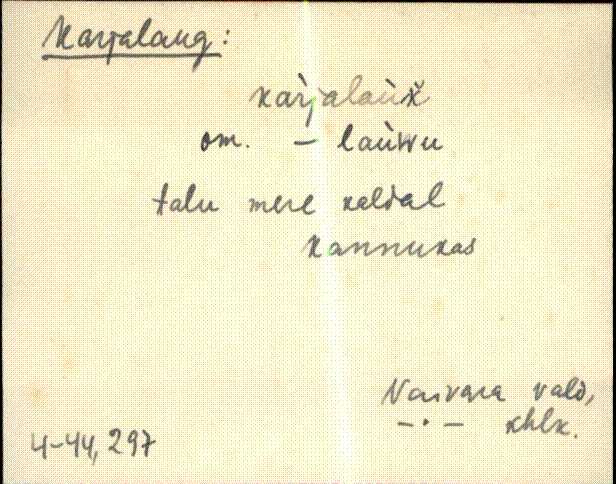 Karjalaug:
kàrjalaùk̆
om. – laùwu
talu mere kaldal
kannukas
Vaivara vald,
–·– khlk.
4-44, 297